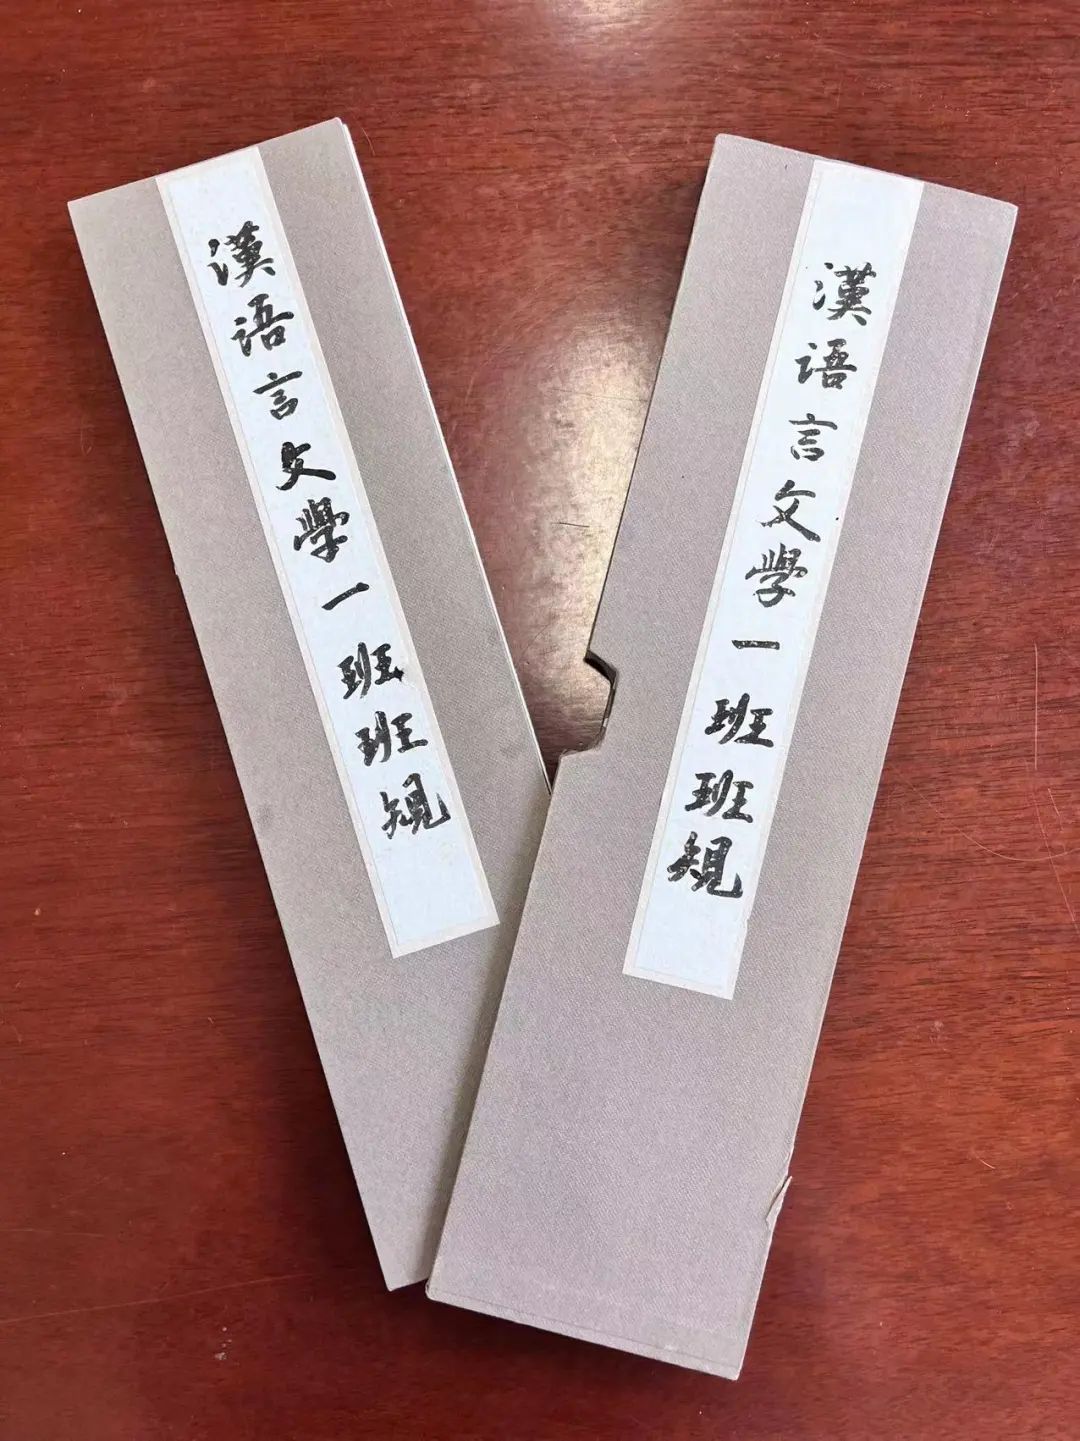 漢语言文學一班班規
漢语言文學一班班規